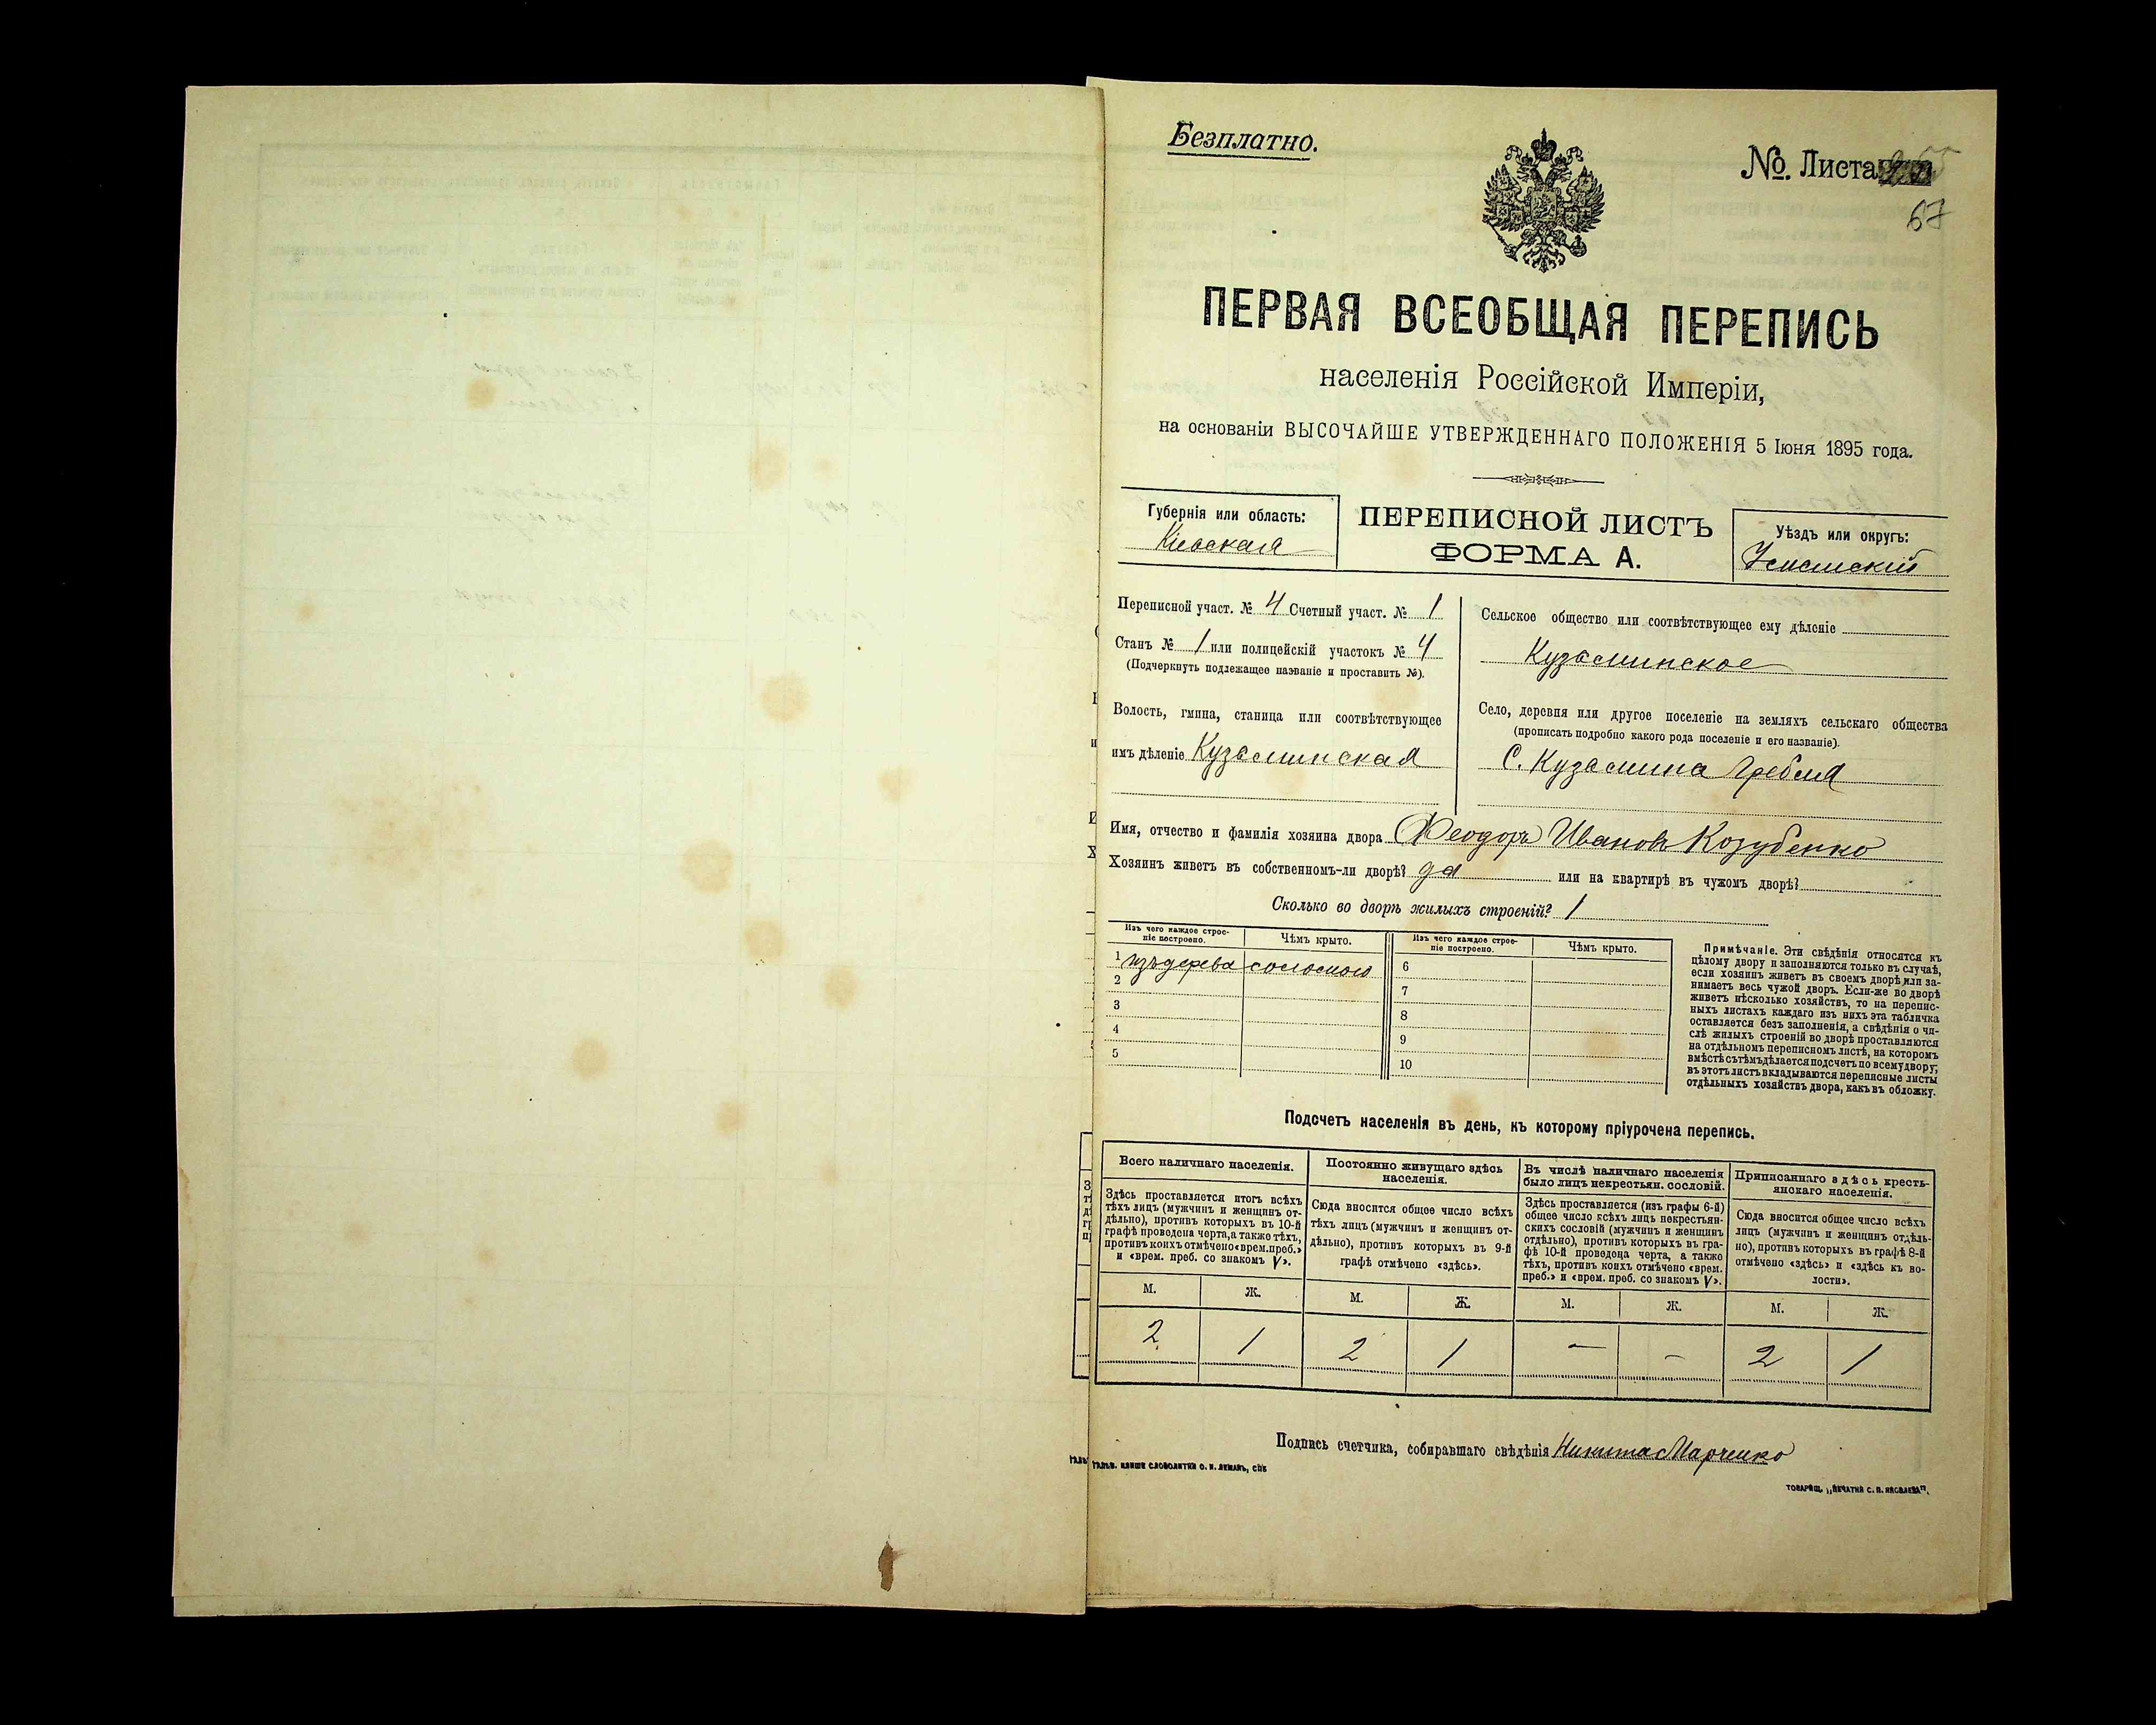 Безплатно.
№. Листа
67
ПЕРВАЯ ВСЕОБЩАЯ ПЕРЕПИСЬ
населенія Россійской Имперіи,
на основаніи ВЫСОЧАЙШЕ УТВЕРЖДЕННАГО ПОЛОЖЕНІЯ 5 Іюня 1895 года.
Губернія или область:
Кіевская
ПЕРЕПИСНОЙ ЛИСТЪ
ФОРМА А.
Уѣздъ или округъ:
Уманскій
Переписной участ. № 4 Счетный участ. № 1
Станъ № 1 или полицейскій участокъ № 4
(Подчеркнуть подлежащее названіе и проставить №).
Волость, гмина, станица или соотвѣтствующее
имъ дѣленіе Кузьминская
Сельское общество или соотвѣтствующее ему дѣленіе
Кузьминское
Село, деревня или другое поселеніе на земляхъ сельскаго общества
(прописать подробно какого рода поселеніе и его названіе).
С. Кузьмина Гребля
Имя, отчество и фамилія хозяина двора Феодоръ Ивановъ Козубенко
Хозяинъ живетъ въ собственномъ-ли дворѣ? да или на квартирѣ въ чужомъ дворѣ?
Сколько во дворѣ жилыхъ строеній? 1
Изъ чего каждое строе-
ніе построено.
Чѣмъ крыто.
Изъ чего каждое строе-
ніе построено.
Чѣмъ крыто.
1 изъ дерева соломою 6
2 7
3 8
4 9
5 10
Примѣчаніе. Эти свѣдѣнія относятся къ
цѣлому двору и заполняются только въ случаѣ,
если хозяинъ живетъ въ своемъ дворѣ или за-
нимаетъ весь чужой дворъ. Если-же во дворѣ
живетъ нѣсколько хозяйствъ, то на перепис-
ныхъ листахъ каждаго изъ нихъ эта табличка
оставляется безъ заполненія, а свѣдѣнія о чи-
слѣ жилыхъ строеній во дворѣ проставляются
на отдѣльномъ переписномъ листѣ, на которомъ
вмѣстѣ съ тѣмъ дѣлается подсчетъ по всему двору;
въ этотъ листъ вкладываются переписные листы
отдѣльныхъ хозяйствъ двора, какъ въ обложку.
Подсчетъ населенія въ день, къ которому пріурочена перепись.
Всего наличнаго населенія.
Здѣсь проставляется итогъ всѣхъ
тѣхъ лицъ (мужчинъ и женщинъ от-
дѣльно), противъ которыхъ въ 10-й
графѣ проведена черта, а также тѣхъ,
противъ коихъ отмѣчено «врем. преб.»
и «врем. преб. со знакомъ V».
Постоянно живущаго здѣсь
населенія.
Сюда вносится общее число всѣхъ
тѣхъ лицъ (мужчинъ и женщинъ от-
дѣльно), противъ которыхъ въ 9-й
графѣ отмѣчено «здѣсь».
Въ числѣ наличнаго населенія
было лицъ некрестьян. сословій.
Здѣсь проставляется (изъ графы 6-й)
общее число всѣхъ лицъ некрестьян-
скихъ сословій (мужчинъ и женщинъ
отдѣльно), противъ которыхъ въ гра-
фѣ 10-й проведена черта, а также
тѣхъ, противъ коихъ отмѣчено «врем.
преб.» и «врем. преб. со знакомъ V».
Приписаннаго здѣсь кресть-
янскаго населенія.
Сюда вносится общее число всѣхъ
лицъ (мужчинъ и женщинъ отдѣль-
но), противъ которыхъ въ графѣ 8-й
отмѣчено «здѣсь» и «здѣсь къ во-
лости».
М. Ж. М. Ж. М. Ж. М. Ж.
2 1 2 1 — - 2 1
Подпись счетчика, собиравшаго свѣдѣнія Никита Марченко
КЛИШЕ СЛОВОЛИТНИ О. И. ЛЕМАНЪ, СПБ
ТОВАРИЩ. „ПЕЧАТНЯ С. П. ЯКОВЛЕВА".